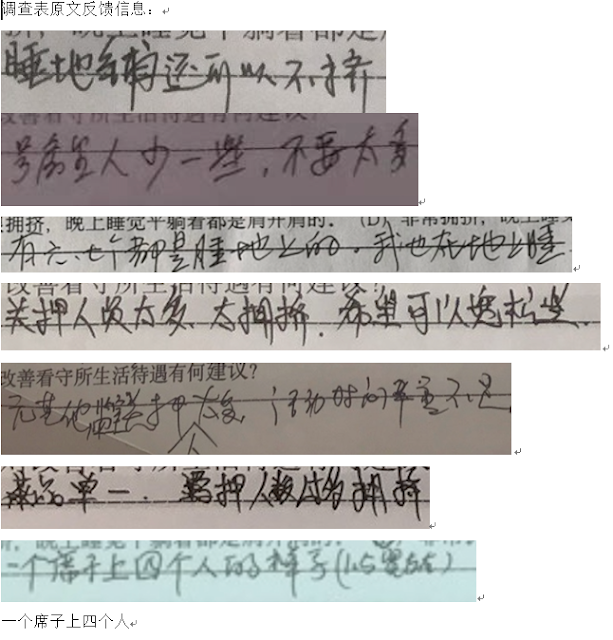 调查表原文反馈信息：
睡地铺还可以不挤
改善看守所生活待遇有何建议？
号房里人少一些，不要太多
拥挤，晚上睡觉平躺着都是肩并肩的． (D)非常拥挤，晚上睡
有六、七个都是睡地上的．我也在地上睡
关押人员太多、太拥挤．希望可以宽松些．
改善看守所生活待遇有何建议？
其他监羁押人太多，活动时间严重不足
菜品单一．羁押人数过多拥挤
一个席子上四个人的样子(1.5宽左右)
一个席子上四个人